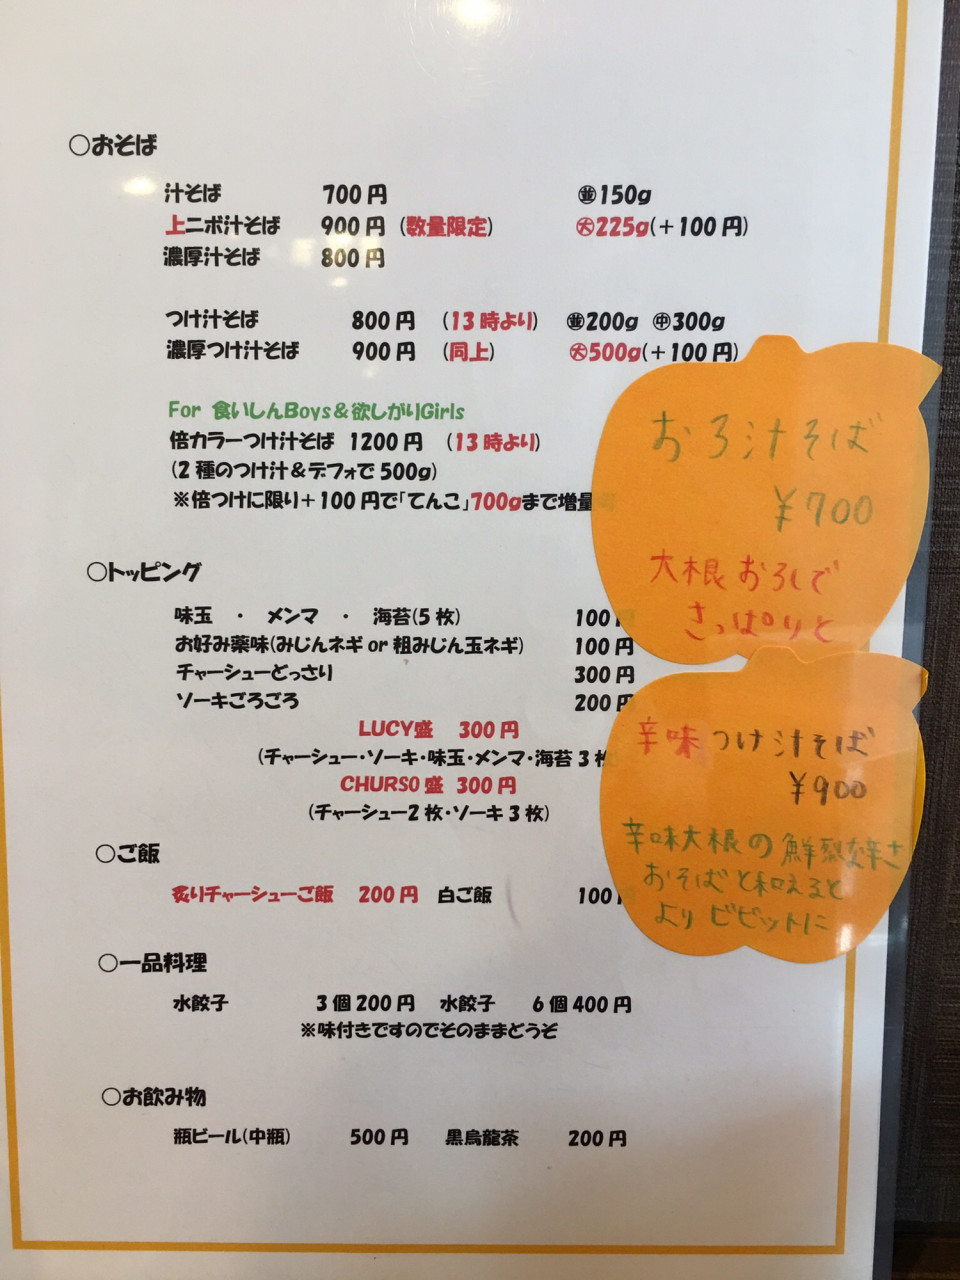 ○おそば
汁そば 700円 ㊀150g
上ニボ汁そば 900円 (数量限定) ㊛225g(+100円)
濃厚汁そば 800円
つけ汁そば 800円 (13時より) 並200g 中300g
濃厚つけ汁そば 900円 (同上) 大500g(+100円)
For 食いしんBoys&欲しがりGirls
倍カラーつけ汁そば 1200円 (13時より)
(2種のつけ汁&デフォで500g)
※倍つけに限り+100円で「てんこ」700gまで増量
○トッピング
味玉 ・ メンマ ・ 海苔(5枚) 100円
お好み薬味(みじんネギor粗みじん玉ネギ) 100円
チャーシューどっさり 300円
ソーキごろごろ 200円
LUCY盛 300円
(チャーシュー・ソーキ・味玉・メンマ・海苔3枚
CHURSO盛 300円
(チャーシュー2枚・ソーキ3枚)
○ご飯
炙りチャーシューご飯 200円 白ご飯 100円
○一品料理
水餃子 3個200円 水餃子 6個400円
※味付きですのでそのままどうぞ
○お飲み物
瓶ビール(中瓶) 500円 黒烏龍茶 200円
おろ汁そば
¥700
大根おろしで
さっぱりと
辛味つけ汁そば
¥900
辛味大根の鮮烈な辛さ
おそばと和えると
よりビビットに